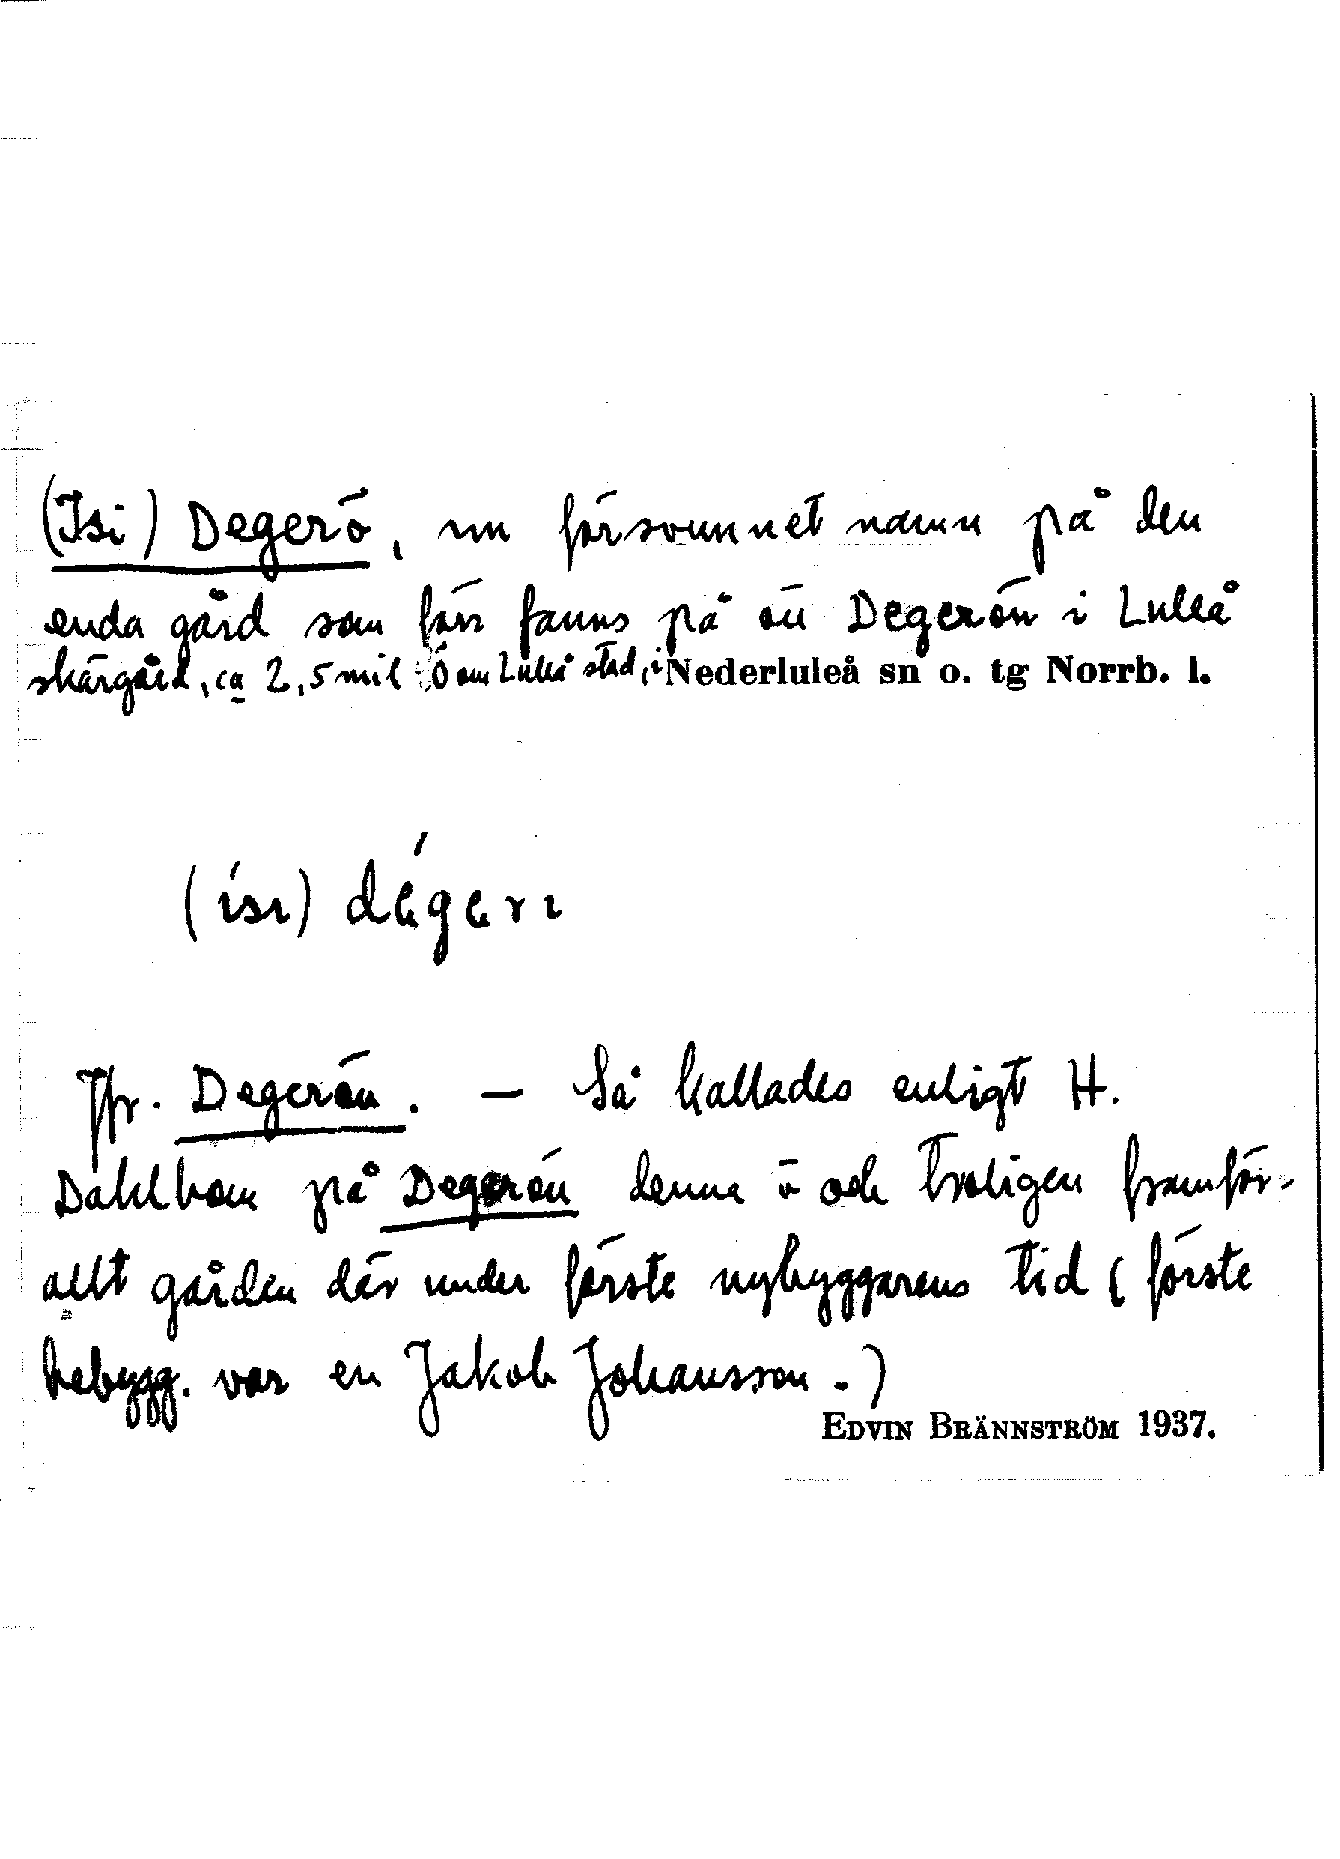 (Isi) Degerö, nu försvunnet namn på den
enda gård som förr fanns på ön Degerön i Luleå
skärgård, ca 2,5 mil Ö om Luleå stad, i Nederluleå sn o. tg Norrb. l.
(ísı) dégerı
Jfr. Degerön. — Så kallades enligt H.
Dahlbom på Degerön denna ö och troligen framför-
allt gården där under förste nybyggarens tid (förste
bebygg. var en Jakob Johansson.)
EDVIN BRÄNNSTRÖM 1937.